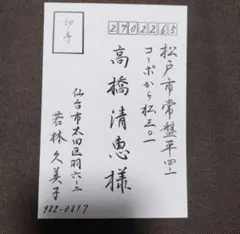 切手
2702265
松戸市常盤平四ー一
コーポから松三〇一
高橋清恵様
仙台市太田区羽六ー三
若林久美子
982-0817